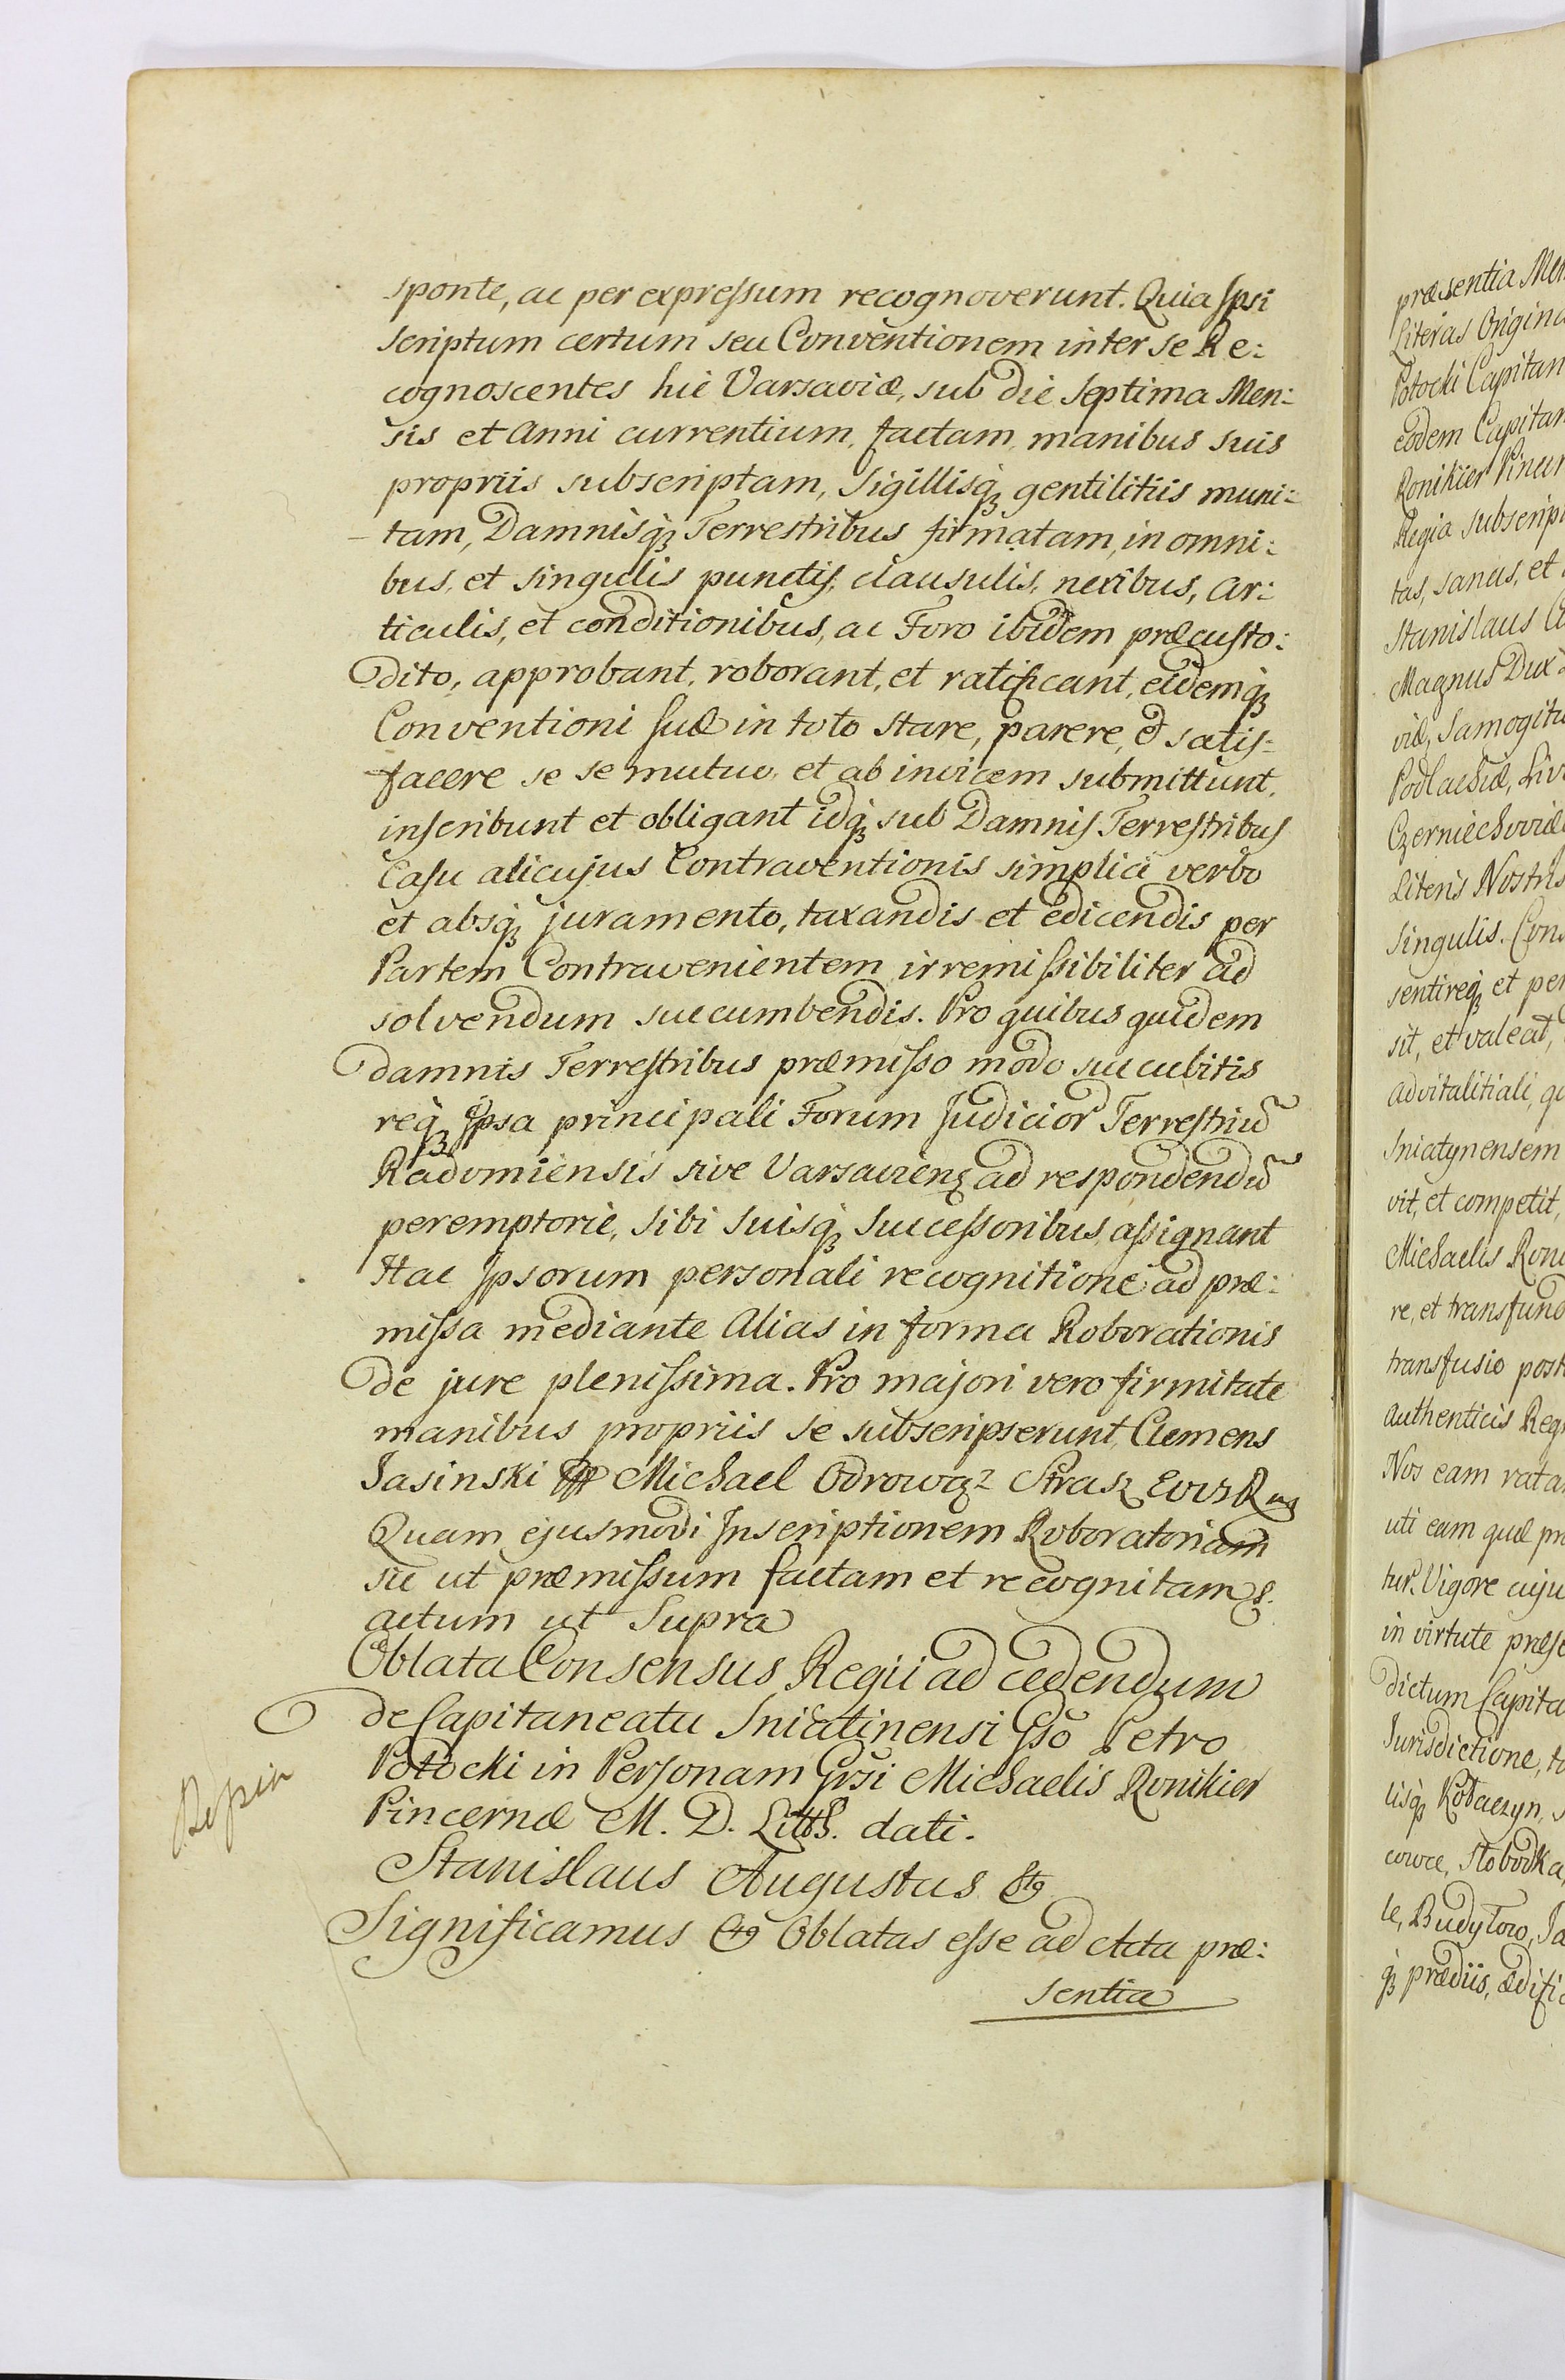 sponte, ac per expressum recognoverunt. Quia Ipsi
scriptum certum seu Conventionem inter se Re:
cognoscentes hic Varsaviæ, sub die septima Men:
sis et anni currentium, factam, manibus suis
propriis subscriptam, Sigillisq3 gentilitiis muni:
tam, Damnisq3 Terrestribus firmatam, in omni:
bus, et singulis punctis, clausulis, nexibus, ar:
ticulis, et conditionibus, ac Foro ibidem præcusto:
dito, approbant, roborant, et ratificant, eidemq3
Conventioni suæ in toto stare, parere, & satis:
facere se se mutuo, et ab invicem submittunt,
inscribunt et obligant idq3 sub Damnis Terrestribus
Casu alicujus Contraventionis simplici verbo
et absq3 juramento, taxandis et edicendis per
Partem Contravenientem irremissibiliter ad
solvendum succumbendis. Pro quibus quidem
damnis Terrestribus præmisso modo succubitis
req3 Ipsa principali Forum Judicior Terrestriū
Radomiensis sive Varsavien3 ad respondendū
peremptorie, sibi suisq3 Successoribus assignant
Hac Ipsorum personali recognitione ad præ:
missa mediante alias in forma Roborationis
de jure plenissima. Pro majori vero firmitate
manibus propriis se subscripserunt, Clemens
Jasinski Michael Odrowąz Strasz
Quam ejusmodi Inscriptionem Roboratoriam
sic ut præmissum factam et recognitam &.
actum ut Supra
Oblata Consensus Regii ad cedendum
de Capitaneatu Sniatinensi Gso Petro
Potocki in Personam Grsi Michaelis Ronikier
Pincernæ M. D. Litth. dati.
Stanislaus Augustus &tc
Significamus &tc Oblatas esse ad Acta præ:
sentia
præsentia Men
Literas Origina
Potocki Capitan
eodem Capitan
Ronikier Pincer
Regia subscrip
tas, sanas, et
Stanislaus
Magnus Dux
viæ, Samogiti
Podlachiæ, Liv
Czerniechoviæ
Literis Nostris
Singulis. Con
sentireq3 et per
sit, et valeat,
advitalitiali, 
Sniatynensem
vit, et competit,
Michaelis Roni
re, et transfund
transfusio post
authenticis Reg
Nos eam rata
uti eam quæ pr
tur. Vigore cuju
in virtute præse
dictum Capita
Jurisdictione,
lisq3 Kołaczyn,
cowce, Słobodka,
le, Budyłow, Ja
q3 prædiis, ædific